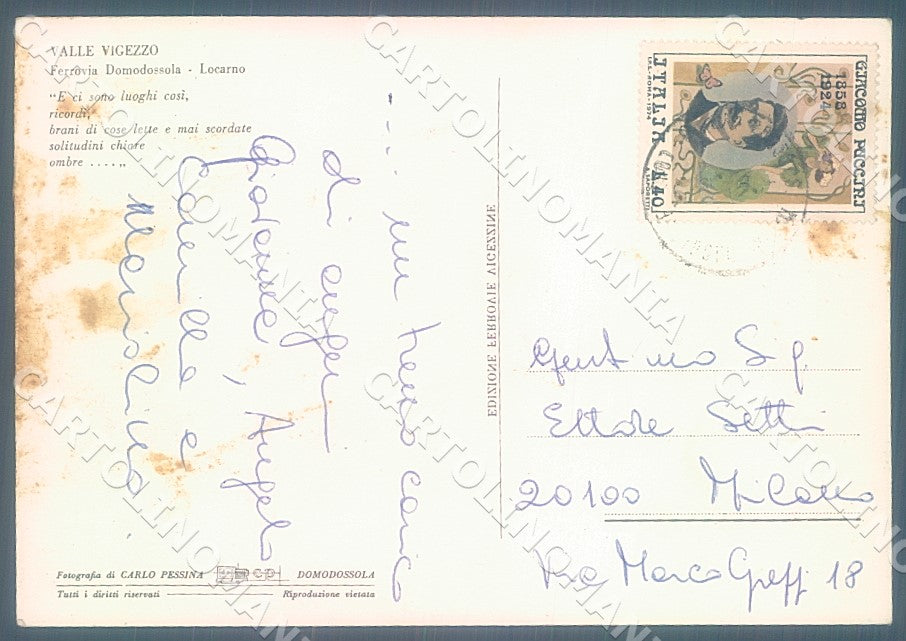 VALLE VIGEZZO
Ferrovia Domodossola - Locarno
"E ci sono luoghi così,
ricordi,
brani di cose lette e mai scordate
solitudini chiare
ombre .....„
... un treno carico
di auguri
Giovanni, Angelo
Camilla e
EDIZIONE FERROVIE VIGEZZINE
GIACOMO PUCCINI
1858
1924
ITALIA L.40
I.P.S.-ROMA-1974
Gent mo Sig.
Ettore Setti
20100 Milano
Via Marco Greppi 18
Fotografia di CARLO PESSINA DOMODOSSOLA
Tutti i diritti riservati Riproduzione vietata
CARTOLINOMANIA